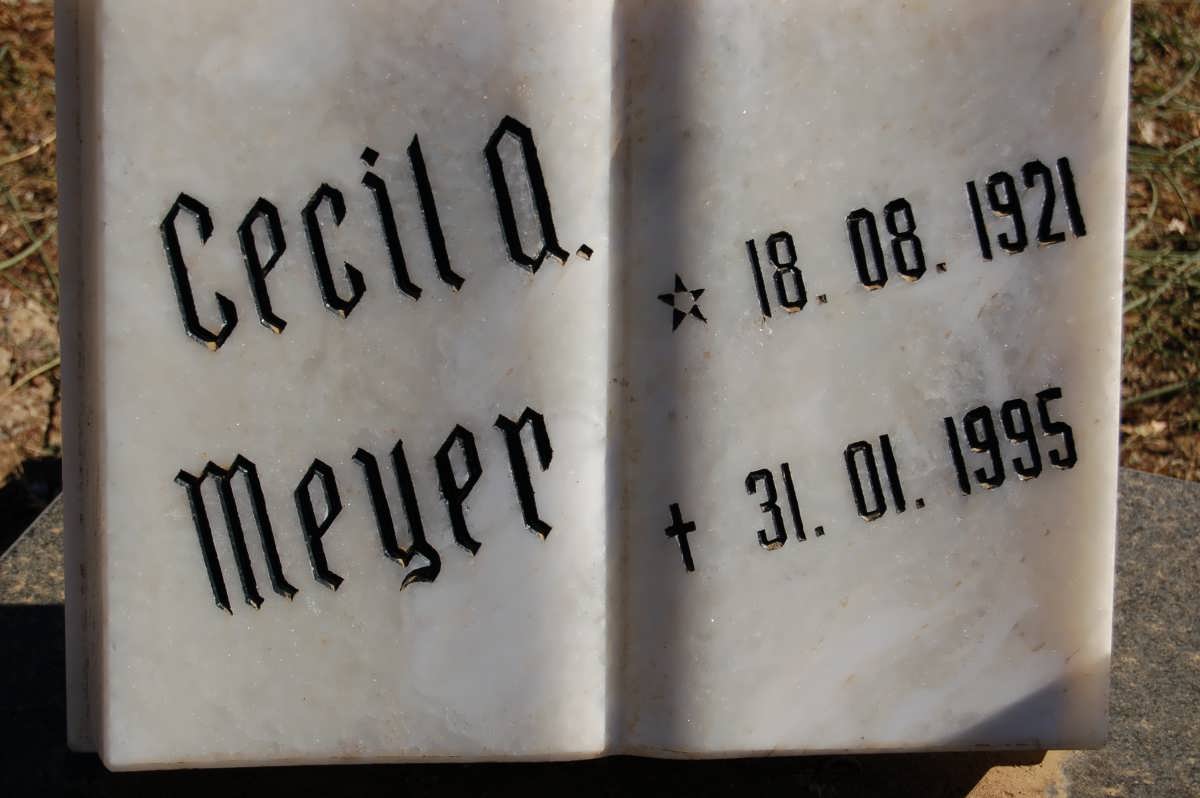 Cecil A.
Meyer
18. 08. 1921
31. 01. 1995